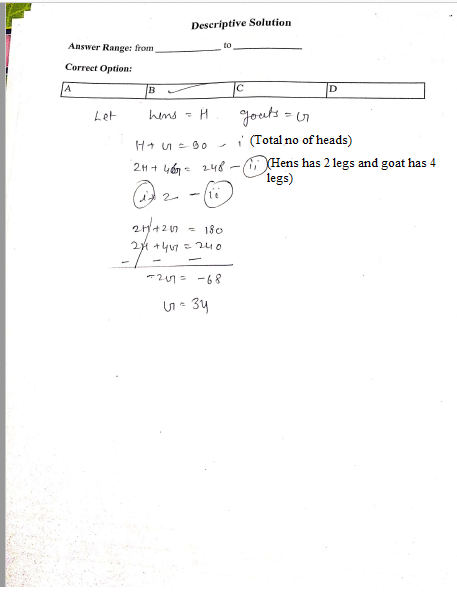 Descriptive Solution
Answer Range: from ____________ to ____________
Correct Option:
A B ✓ C D
Let hens = H goats = G
H + G = 90 - i (Total no of heads)
2H + 4G = 248 - (ii) (Hens has 2 legs and goat has 4 legs)
(i) x 2 - (ii)
2H + 2G = 180
2H + 4G = 240
- - -
-2G = -68
G = 34